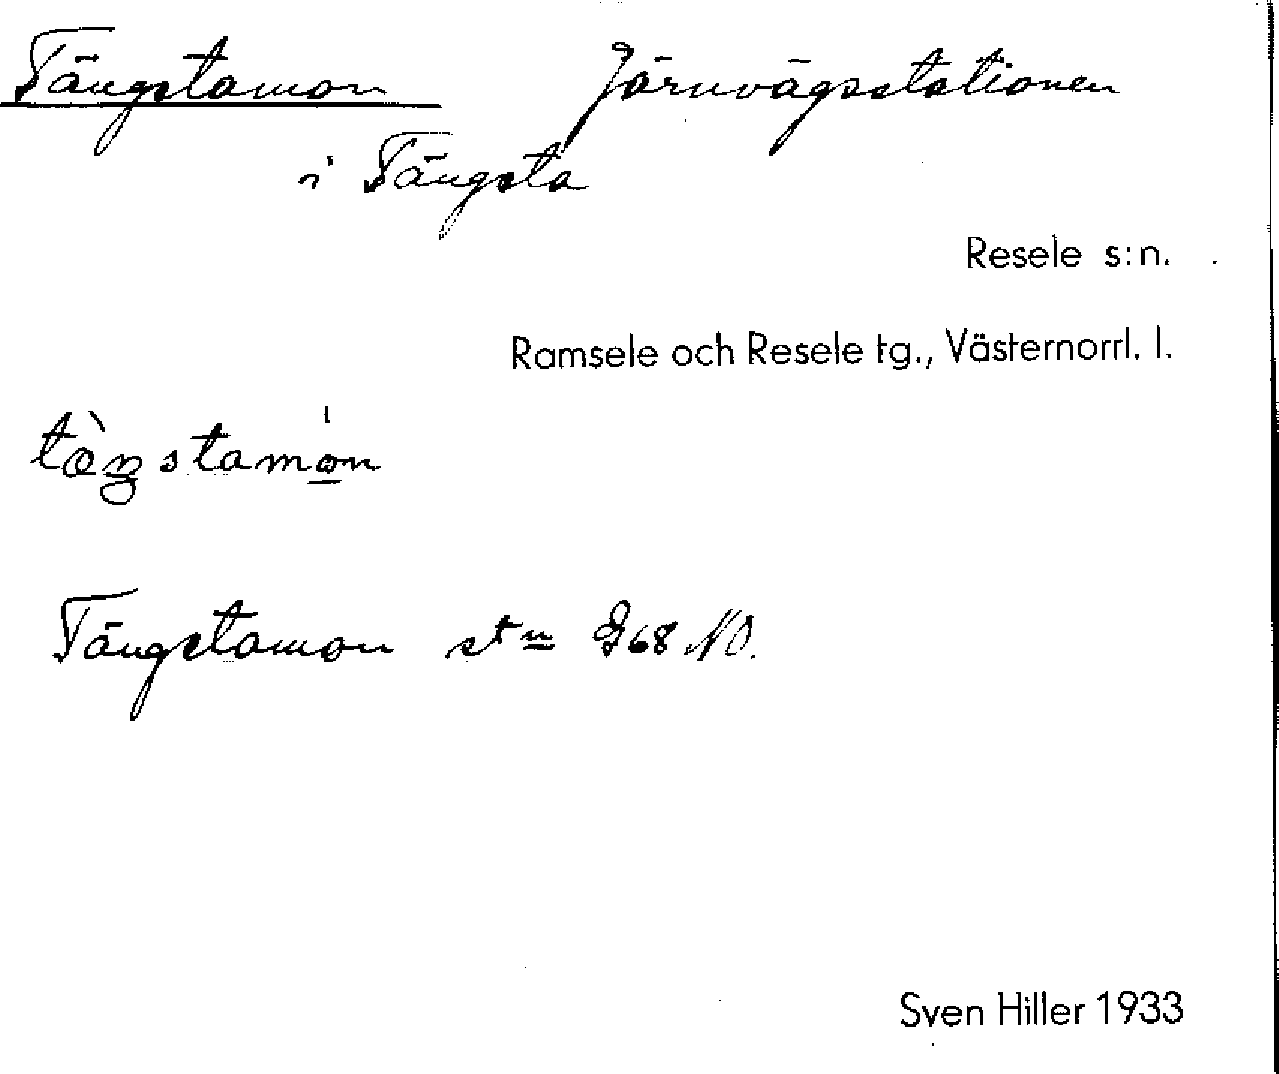 Tängstamon Järnvägsstationen
i Tängsta
Resele s:n.
Ramsele och Resele tg., Västernorrl. l.
Tängstamon stn G68 NO.
Sven Hiller 1933